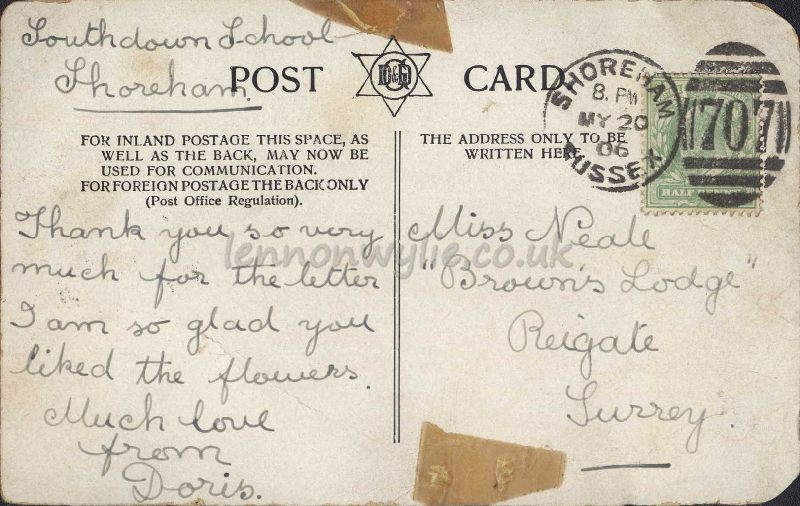 Southdown School
Shoreham
POST CARD
D&G
SHOREHAM
8. PM
MY 20
06
SUSSEX
707
HALF
FOR INLAND POSTAGE THIS SPACE, AS
WELL AS THE BACK, MAY NOW BE
USED FOR COMMUNICATION.
FOR FOREIGN POSTAGE THE BACK ONLY
(Post Office Regulation).
THE ADDRESS ONLY TO BE
WRITTEN HERE
Thank you so very
much for the letter
I am so glad you
liked the flowers.
Much love
from
Doris.
Miss Neale
"Brown's Lodge"
Reigate
Surrey.
lennonwylie.co.uk